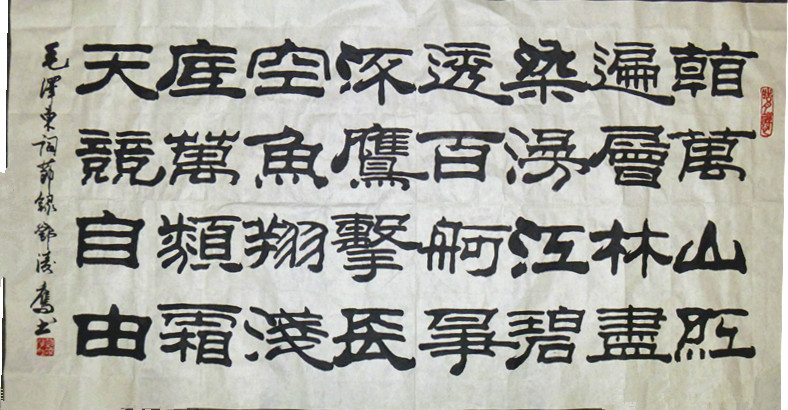 看萬山紅
遍層林盡
染漫江碧
透百舸爭
流鷹擊長
空魚翔淺
底萬類霜
天競自由
毛澤東詞節錄鄧书